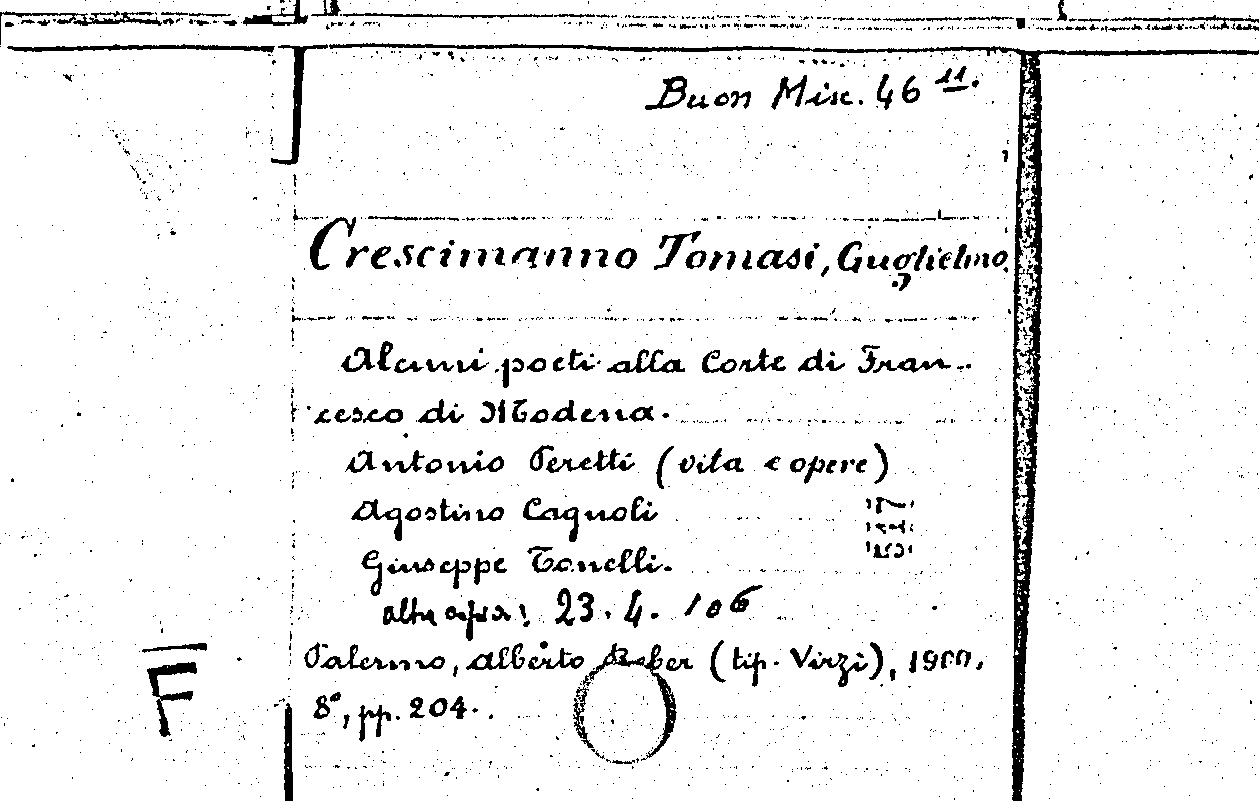 Buon Misc. 46 11.
Crescimanno Tomasi, Guglielmo
Alcuni poeti alla Corte di Fran-
cesco di Modena.
Antonio Peretti (vita e opere)
Agostino Cagnoli
Giuseppe Tonelli.
altra copia: 23. 4. 106
Palermo, Alberto Reber (tip. Virzì), 1900.
8°, pp. 204.
F